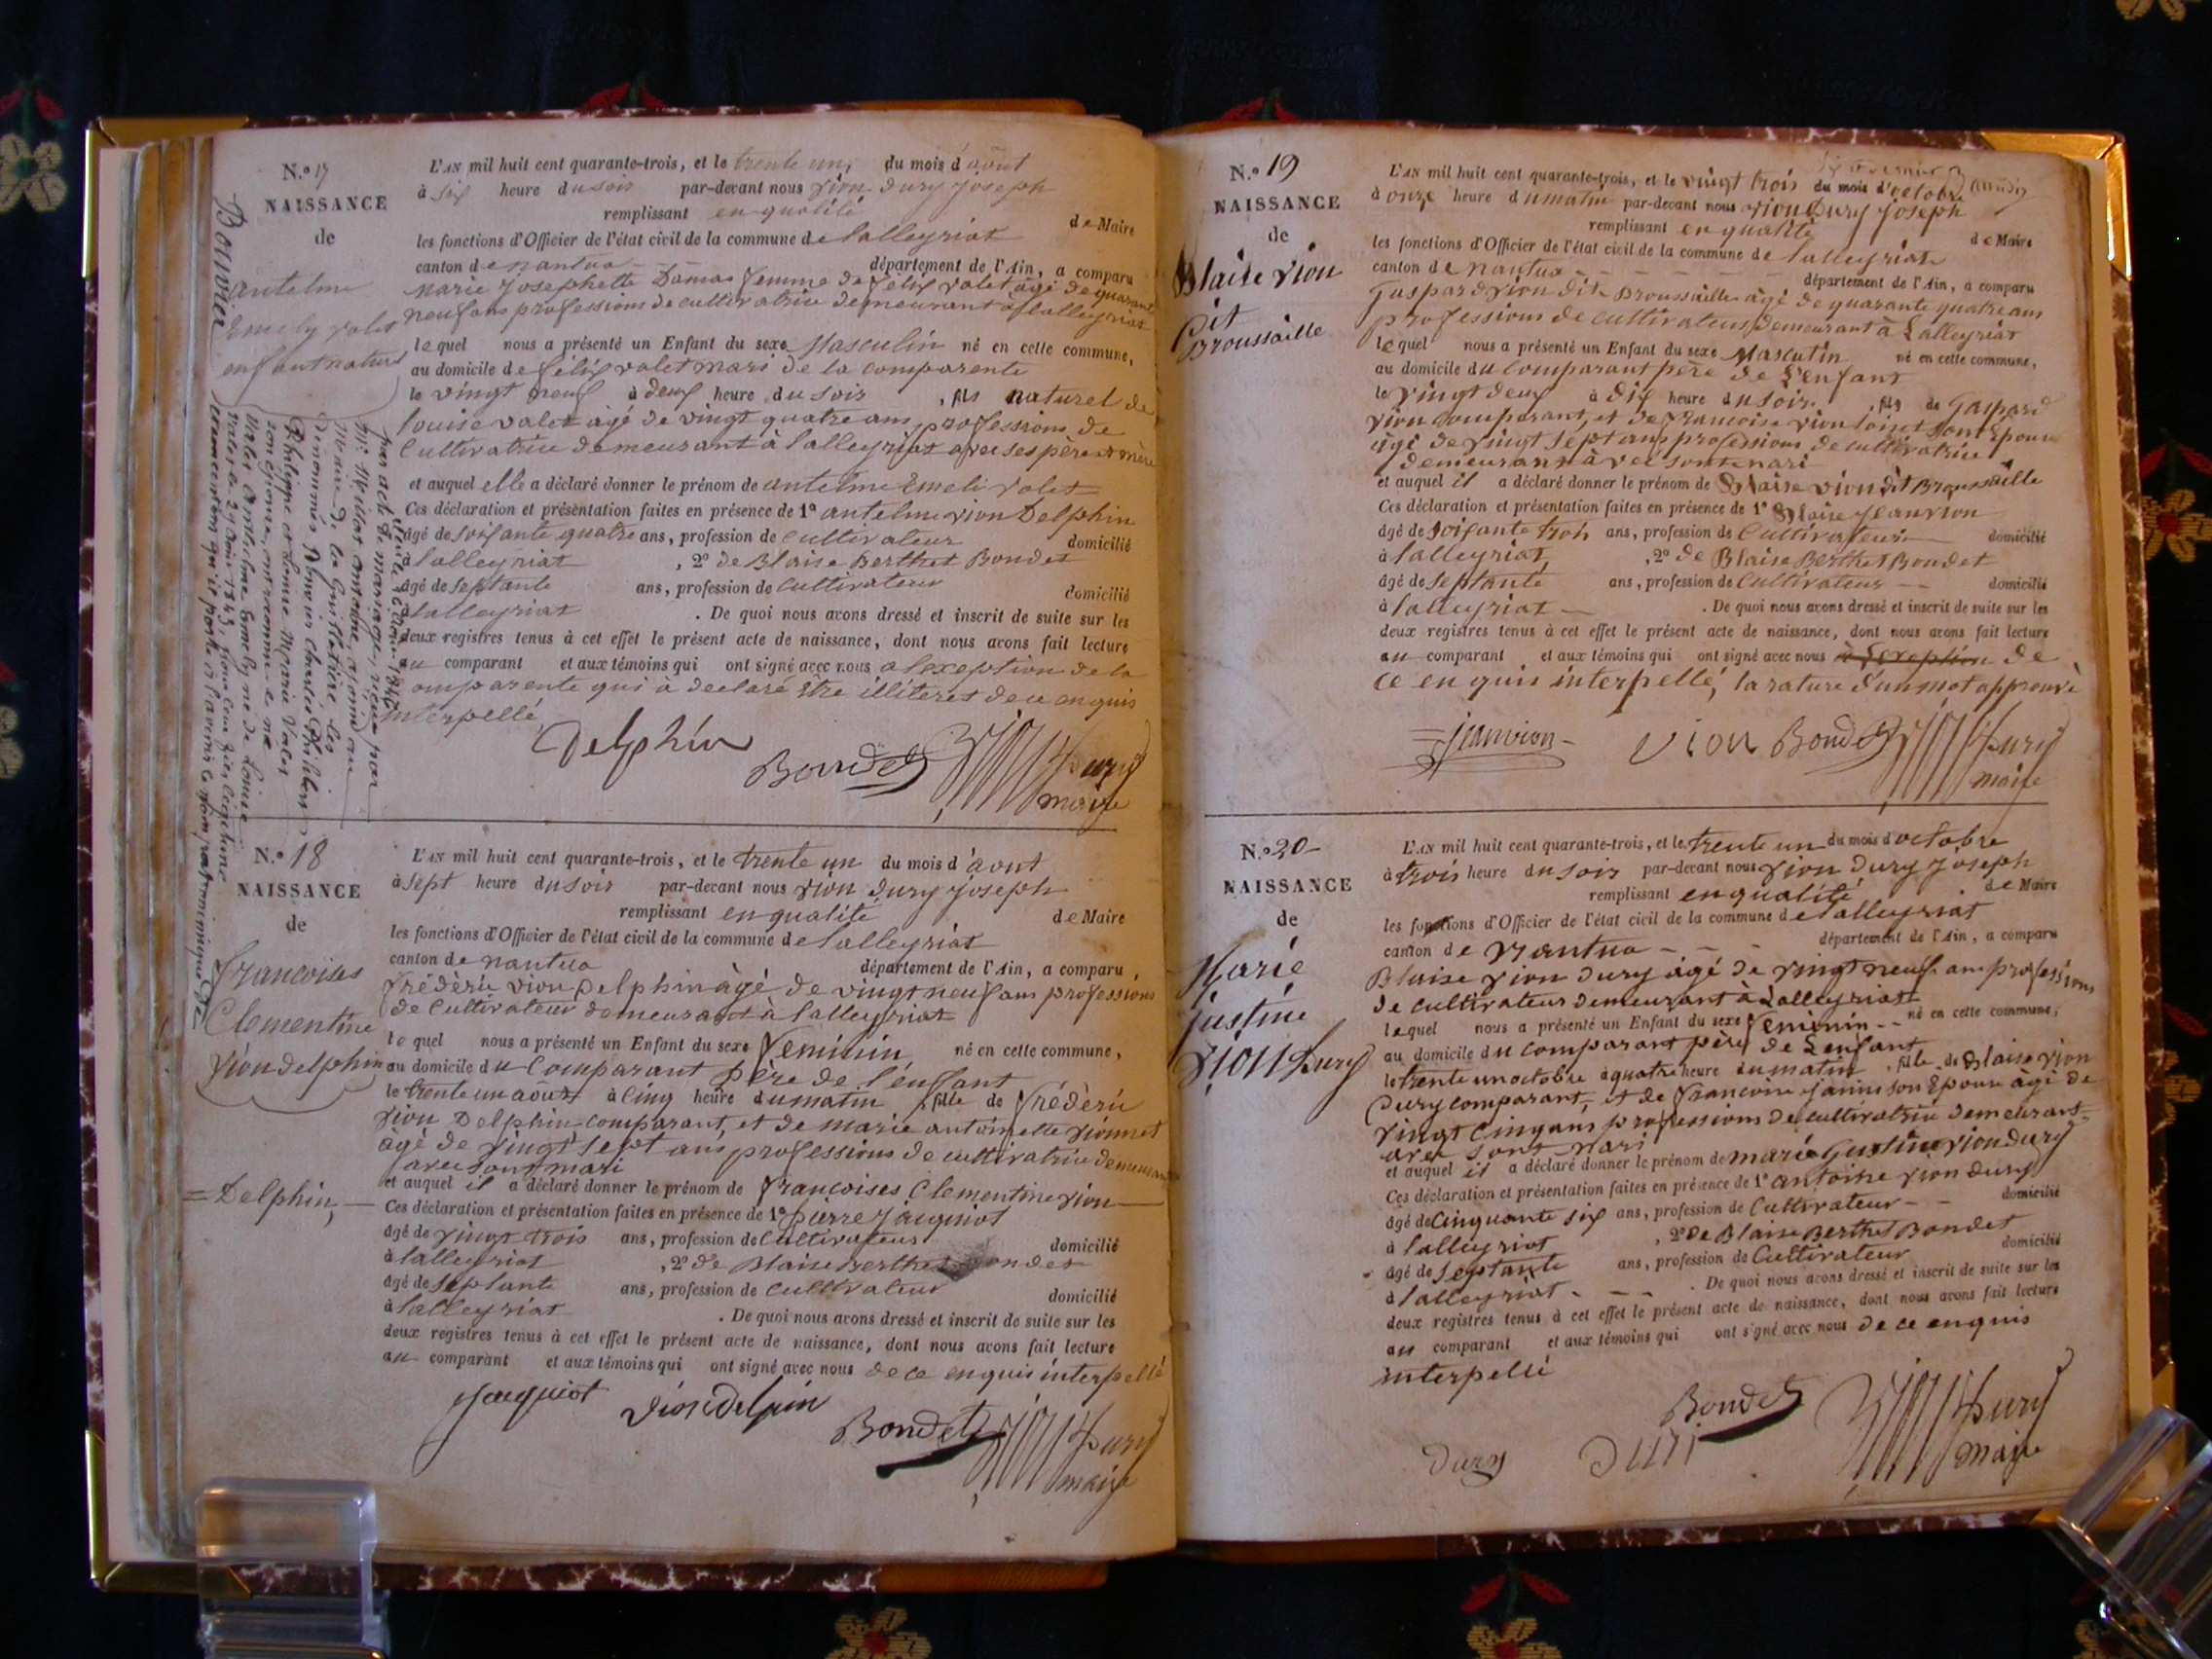 N.º 17
NAISSANCE
de
antelme
Emely valet
enfant naturel
Bouvier
par acte de mariage, reçu par
Mr Millet antoine, adjoint au
Maire de la
dénommés Bouvier Charles Philibert
Philippe et Louise Marie Valet
son épouse, ont reconnu le né
Valet Anthelme Emely né de Louise
Valet le 29 août 1843, pour leur fils légitime
qu'il porte à l'avenir le nom patronimique de
L'AN mil huit cent quarante-trois, et le trente un, du mois d'août
à six heure du soir par-devant nous vion dury Joseph
remplissant en qualité de Maire
les fonctions d'Officier de l'état civil de la commune de lalleyriat
canton de nantua département de l'Ain, a comparu
marie Josephette Damas femme de félix valet âgé de quarante
neuf ans professions de cultivatrice demeurant à lalleyriat
lequel nous a présenté un Enfant du sexe Masculin né en cette commune,
au domicile de félix valet mari de la comparente
le vingt neuf à deux heure du soir , fils naturel de
louise valet âgé de vingt quatre ans professions de
Cultivatrice demeurant à lalleyriat avec ses père et mère
et auquel elle a déclaré donner le prénom de antelme Emeli valet
Ces déclaration et présentation faites en présence de 1º antelme vion Delphin
âgé de soixante quatre ans, profession de Cultivateur domicilié
à lalleyriat , 2º de Blaise Berthet Bondet
âgé de septante ans, profession de Cultivateur domicilié
à lalleyriat . De quoi nous avons dressé et inscrit de suite sur les
deux registres tenus à cet effet le présent acte de naissance, dont nous avons fait lecture
au comparant et aux témoins qui ont signé avec nous a lexeption de la
comparente qui à declaré être illiteret de ce enquis
interpellé
Delphin
Bondet
Dury
maire
N.º 18
NAISSANCE
de
françoises
Clementine
Vion delphin
= Delphin, —
L'AN mil huit cent quarante-trois, et le trente un du mois d'aout
à sept heure du soir par-devant nous vion dury Joseph
remplissant en qualité de Maire
les fonctions d'Officier de l'état civil de la commune de lalleyriat
canton de nantua département de l'Ain, a comparu,
frédéric vion Delphin âgé de vingt neuf ans professions
de Cultivateur demeurant à lalleyriat
lequel nous a présenté un Enfant du sexe feminin né en cette commune,
au domicile du Comparant père de l'enfant
le trente un août à cinq heure du matin , fille de frédéric
vion Delphin comparant, et de marie antoinette vionnet
âgé de vingt sept ans professions de cultivatrice demeurant
avec sont mari
et auquel il a déclaré donner le prénom de françoises Clementine vion —
Ces déclaration et présentation faites en présence de 1º pierre Jaquiot
âgé de vingt trois ans, profession de Cultivateur domicilié
à lalleyriat , 2º de Blaise Berthet Bondet
âgé de septante ans, profession de Cultivateur domicilié
à lalleyriat . De quoi nous avons dressé et inscrit de suite sur les
deux registres tenus à cet effet le présent acte de naissance, dont nous avons fait lecture
au comparant et aux témoins qui ont signé avec nous de ce enquis interpellé
Jaquiot
Vion delpin
Bondet
Dury
maire
N.º 19
NAISSANCE
de
Blaise vion
dit
Broussaille
L'AN mil huit cent quarante-trois, et le vingt trois du mois d'octobre
à onze heure du matin par-devant nous vion Dury Joseph
remplissant en qualité de Maire
les fonctions d'Officier de l'état civil de la commune de lalleyriat
canton de nantua département de l'Ain, a comparu
Gaspard vion dit Broussaille âgé de quarante quatre ans
professions de cultivateur demeurant à Lalleyriat
lequel nous a présenté un Enfant du sexe Masculin né en cette commune,
au domicile du comparant père de l'enfant
le vingt deux à dix heure du soir. , fils de Gaspard
vion comparant, et de francoise vion loiset sont Epouse
âgé de vingt sept ans professions de cultivatrice
demeurant àvec sont mari
et auquel il a déclaré donner le prénom de Blaise vion dit Broussaille
Ces déclaration et présentation faites en présence de 1º Blaise Jeanvion
âgé de soixante trois ans, profession de Cultivateur domicilié
à lalleyriat , 2º de Blaise Berthet Bondet
âgé de septante ans, profession de Cultivateur -- domicilié
à lalleyriat — . De quoi nous avons dressé et inscrit de suite sur les
deux registres tenus à cet effet le présent acte de naissance, dont nous avons fait lecture
au comparant et aux témoins qui ont signé avec nous a Lexeption de
ce en quis interpellé, la rature d'un mot approuvé
Jeanvion
Vion
Bondet
Dury
maire
N.º 20
NAISSANCE
de
Marie
justine
Vion Dury
L'AN mil huit cent quarante-trois, et le trente un du mois d'octobre
à trois heure du soir par-devant nous vion Dury Joseph
remplissant en qualité de Maire
les fonctions d'Officier de l'état civil de la commune de lalleyriat
canton de nantua - - - département de l'Ain, a comparu
Blaise vion dury âgé de vingt neuf ans professions
de cultivateur demeurant à Lalleyriat
lequel nous a présenté un Enfant du sexe feminin -- né en cette commune,
au domicile du comparant père de Lenfant
le trente un octobre à quatre heure du matin , fille de Blaise vion
Dury comparant, et de francoise Janin son Epouse âgé de
vingt cinq ans professions de cultivatrice demeurant
avec sont mari
et auquel il a déclaré donner le prénom de marie Justine vion dury
Ces déclaration et présentation faites en présence de 1º antoine vion dury
âgé de cinquante six ans, profession de Cultivateur -- domicilié
à lalleyriat , 2º de Blaise Berthet Bondet
âgé de septante ans, profession de Cultivateur domicilié
à lalleyriat - - - . De quoi nous avons dressé et inscrit de suite sur les
deux registres tenus à cet effet le présent acte de naissance, dont nous avons fait lecture
au comparant et aux témoins qui ont signé avec nous de ce enquis
interpellé
Bondet
Dury
Duri
Dury
maire